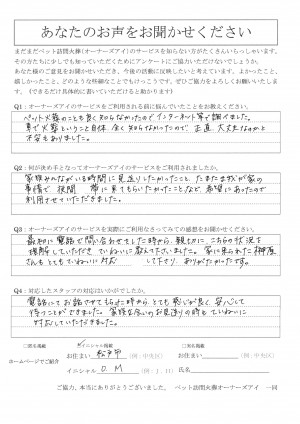 あなたのお声をお聞かせください
まだまだペット訪問火葬(オーナーズアイ)のサービスを知らない方がたくさんいらっしゃいます。
その方たちに少しでも知っていただくためにアンケートにご協力いただけないでしょうか。
あなた様のご意見をお聞かせいただき、今後の活動に反映したいと考えています。よかったこと、
嬉しかったこと、どのような些細なことでもけっこうです。ぜひご協力をよろしくお願いいたします。
(できるだけ具体的に書いていただけると助かります)
Q1:オーナーズアイのサービスをご利用される前に悩んでいたことをお教えください。
ペット火葬のことも良く知らなかったのでインターネット等で調べました。
車で火葬ということ自体、全く知らなかったので 正直、大丈夫なのかと
不安もありました。
Q2:何が決め手となってオーナーズアイのサービスをご利用されましたか。
家族みんながいる時間に見送りしたかったこと、たまたま我が家の
事情で 夜間 に来てもらいたかったことなど、希望にあったので
利用させていただきました。
Q3:オーナーズアイのサービスを実際にご利用なさってみての感想をお聞かせください。
最初に電話で問い合わせをした時から、親切に、こちらの状況を
理解していただき ていねいに教えて下さいました。家に来られた
さんもとてもていねいに対応 して下さり、ありがたかったです。
Q4:対応したスタッフの対応はいかがでしたか。
電話にてお話させてもらった時から、とても感じが良く、安心して
待つことができました。家族を含めお見送りの時もていねいに
対応していただきました。
ホームページでご紹介
□匿名掲載
☑イニシャル掲載
□実名掲載
お住まい 松戸市 (例:中央区)
お住まい (例:中央区)
イニシャル O.M (例:J.H)
氏名
ご協力、本当にありがとうございました。 ペット訪問火葬オーナーズアイ 一同